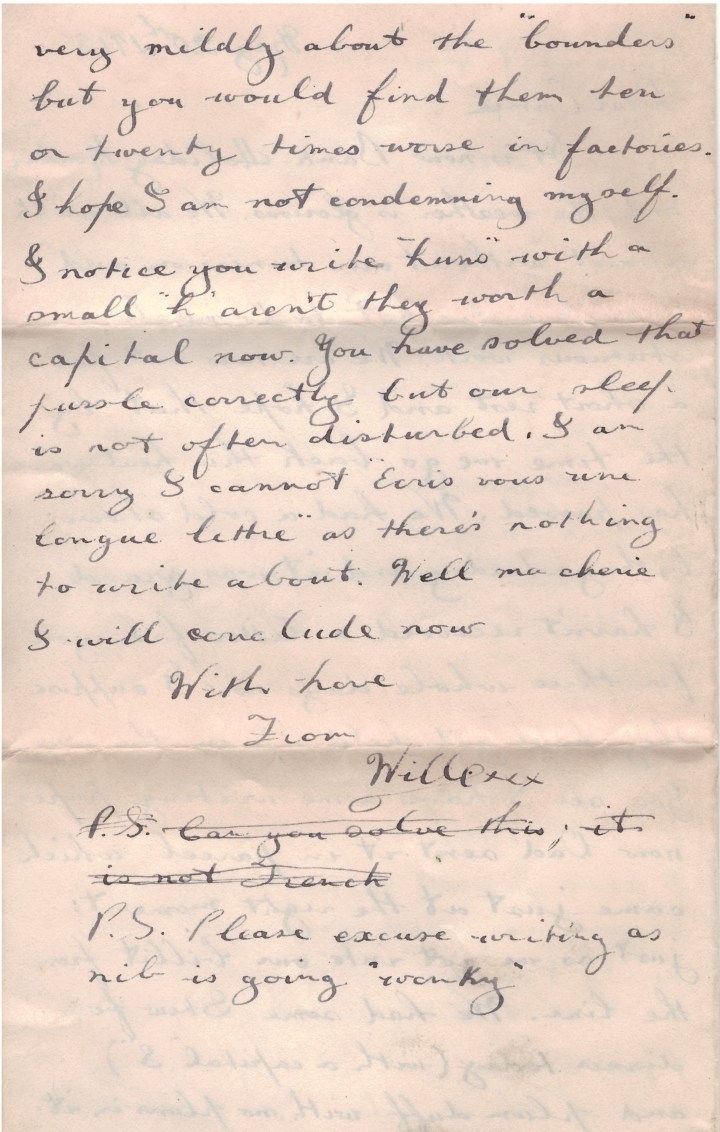 very mildly about the "bounders"
but you would find them ten
or twenty times worse in factories.
I hope I am not condemning myself.
I notice you write "huns" with a
small "h" aren't they worth a
capital now. You have solved that
pussle correctly but our sleep
is not often disturbed. I am
sorry I cannot "Ecris vous une
longue lettre" as there's nothing
to write about. Well ma cherie
I will conclude now
With love
From
Will xxx
P.S. Can you solve this; it
is not French
P.S. Please excuse writing as
nib is going "wonky"